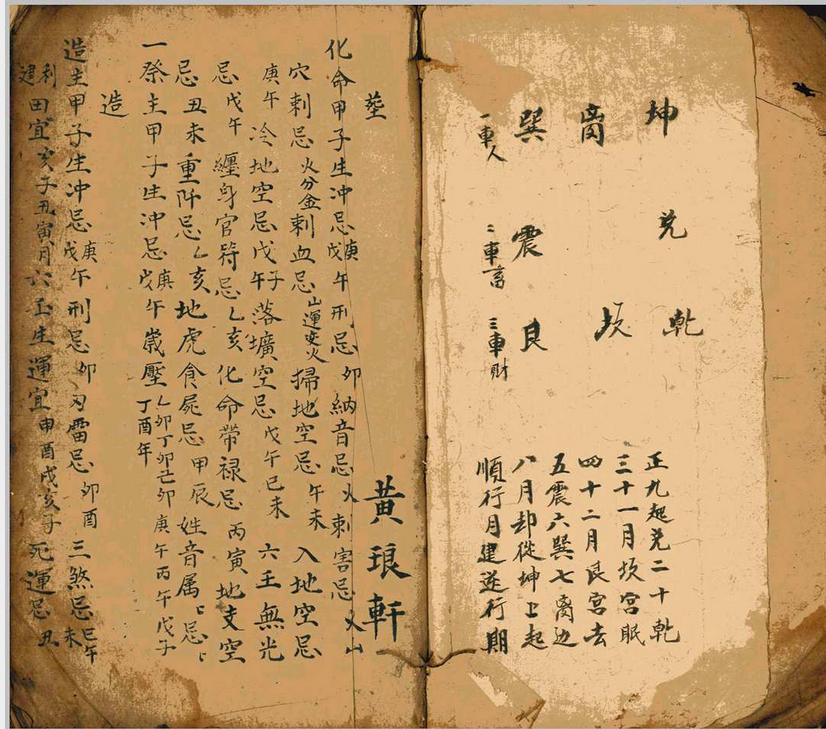 坤 兌 乾
离 坎
巽 震 艮
一車人 二車畜 三車財
正九起兌二十乾
三十一月坎宮眠
四十二月艮宮去
五震六巽七离边
八月却從坤上起
順行月建逆行期
黃琅軒
塋
化命甲子生冲忌庚戊午刑忌卯納音忌火刺害忌火山
穴刺忌火分金刺血忌山運安火掃地空忌午未入地空忌
庚午冷地空忌戊午子落壙空忌戊午巳未六壬無光
忌戊午纏身官符忌乙亥化命帶禄忌丙寅地支空
忌丑未重阡忌乙亥地虎食屍忌甲辰姓音属〻忌〻
一祭主甲子生冲忌庚戊午歲壓乙卯丁卯己卯庚午丙午戊子丁酉年
造
造主甲子生冲忌庚戊午刑忌卯刃雷忌卯酉三煞忌巳午未
利建田宜亥子丑寅月六壬生運宜申酉戌亥子死運忌丑